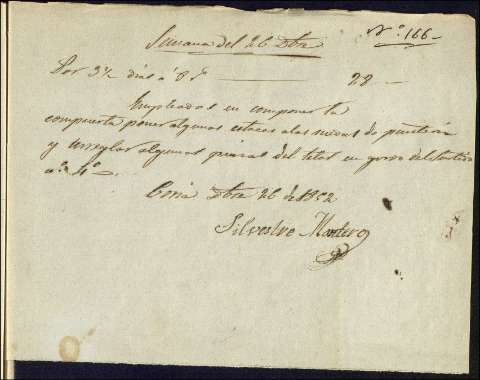 Nº 166
Semana del 26 Dbre
Por 3½ dias á 8 rs 28
Empleados en componer la
compuerta poner algunas estacas a las ruedas de
y arreglar algunas piezas del telar en
nº 4º
Coria Dbre 26 de 1852
Silvestre Montero